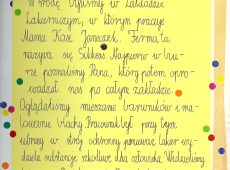 W środę byliśmy w zakładzie
lakierniczym, w którym pracuje
Mama Kasi Janeczek. Firma ta
nazywa się Sikkens. Najpierw w biu-
rze poznaliśmy Pana, który potem opro-
wadzał nas po całym zakładzie.
Oglądaliśmy mieszanie barwników i ma-
lowanie blachy. Pracownik był przy tym
ubrany w strój ochronny ponieważ lakier wy-
dziela substancje szkodliwe dla człowieka. Widzieliśmy